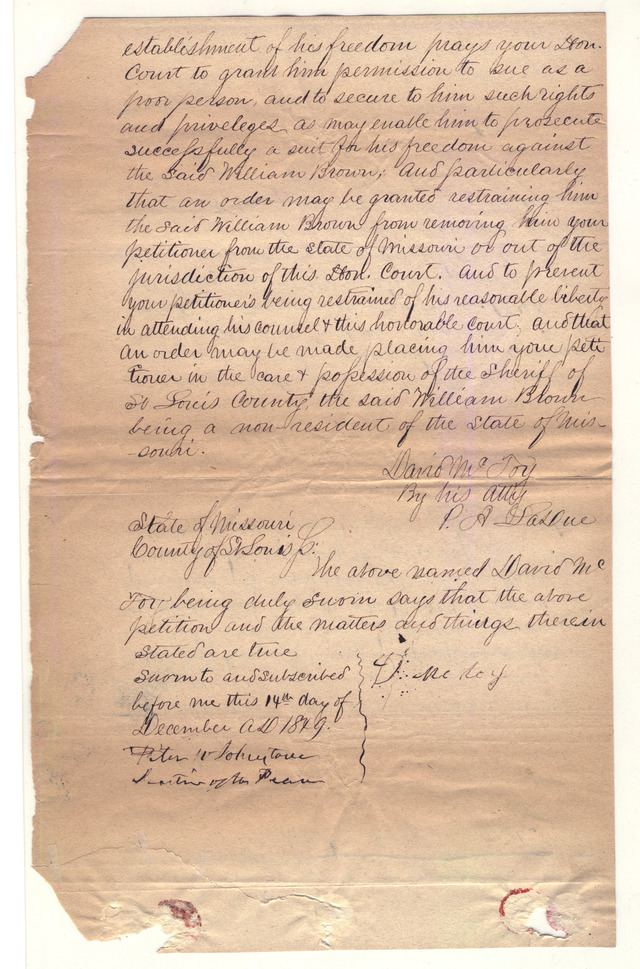 establishment of his freedom prays your Hon.
Court to grant him permission to sue as a
poor person, and to secure to him such rights
and priveleges as may enable him to prosecute
successfully a suit for his freedom against
the said William Brown; And particularly
that an order may be granted restraining him
the said William Brown from removing him your
petitioner from the State of Missouri or out of the
jurisdiction of this Hon. Court. And to prevent
your petitioner's being restrained of his reasonable liberty
in attending his counsel & this honorable court, and that
an order may be made placing him your peti
tioner in the care & possession of the Sheriff of
St Louis County, the said William Brown
being a non-resident of the State of Mis-
-souri.
David McFoy
By his atty
P. A. LaDue
State of Missouri
County of St Louis
The above named David Mc
Foy being duly sworn says that the above
petition and the matters and things therein
stated are true
Sworn to and subscribed
before me this 14th day of
December AD 1849.
D. Mc foy
Peter W Johnstone
Justice of the Peace